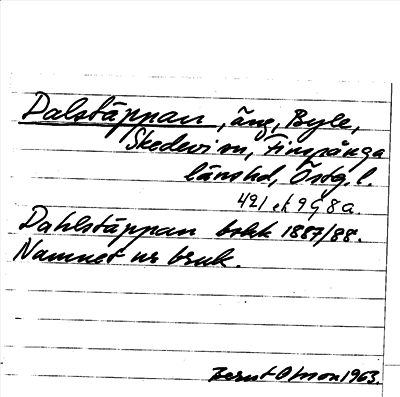 Dalstäppan, äng, Byle,
Skedevi sn, Finspånga
länshd, Östg. l.
421 ek 9G 8a.
Dahlstäppan bokk 1887/88.
Namnet ur bruk.
Bernt Olsson 1963.